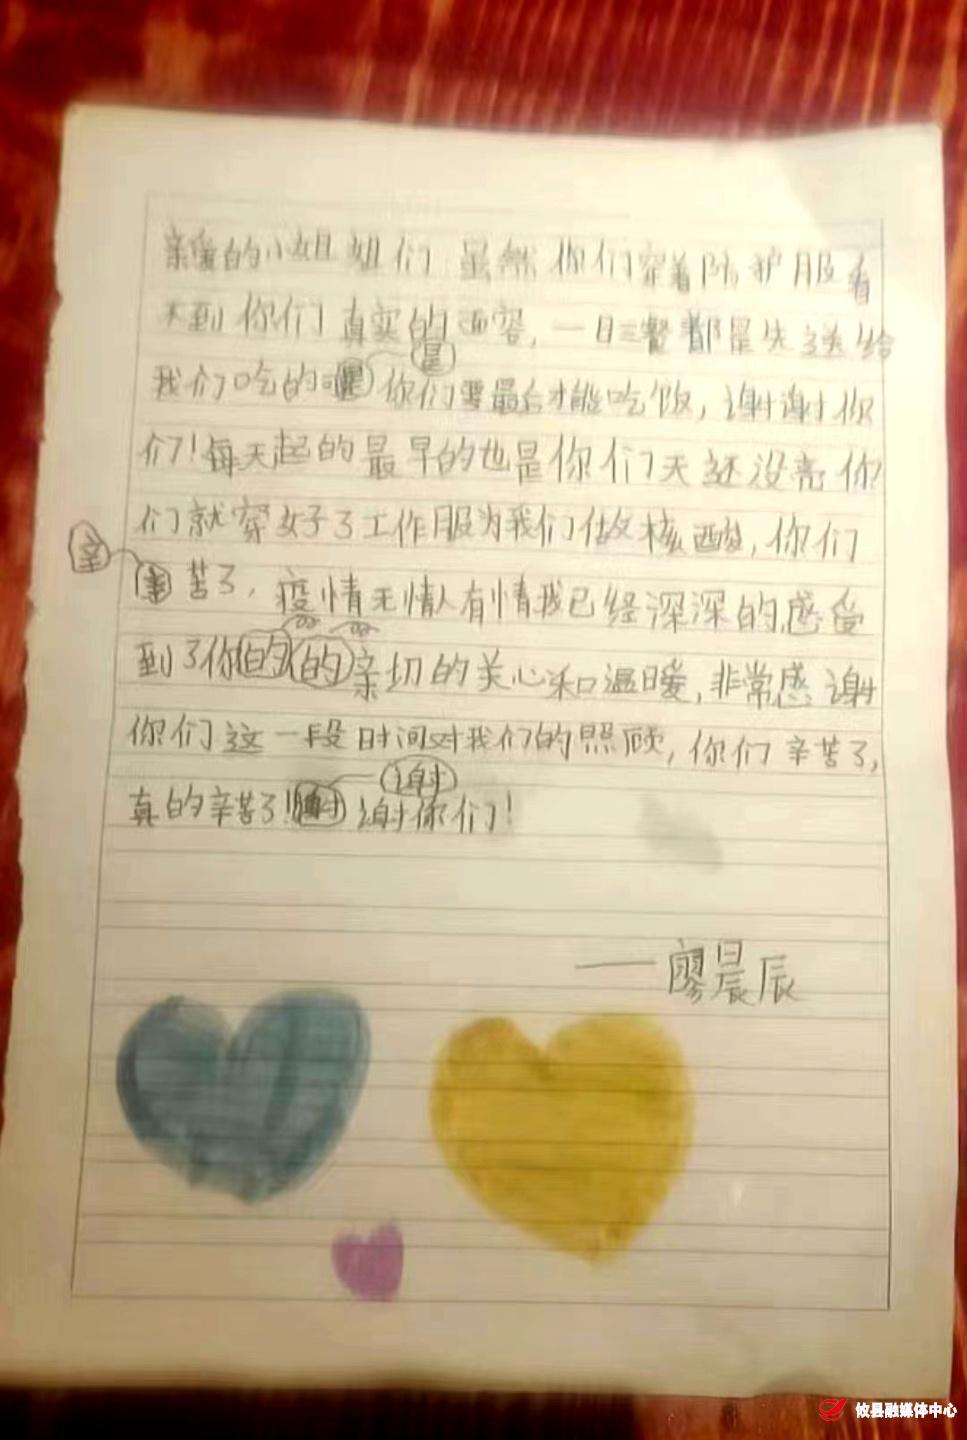 亲爱的小姐姐们 虽然你们穿着防护服看
不到你们真实的面容，一日三餐都是先送给
是
我们吃的 你们要最后才能吃饭，谢谢你
们！每天起的最早的也是你们天还没亮你
们就穿好了工作服为我们做核酸，你们
辛
苦了，疫情无情人有情我已经深深的感受
到了你的(的)亲切的关心和温暖，非常感谢
你们这一段时间对我们的照顾，你们辛苦了，
谢
真的辛苦了！谢你们！
——廖晨辰
攸县融媒体中心